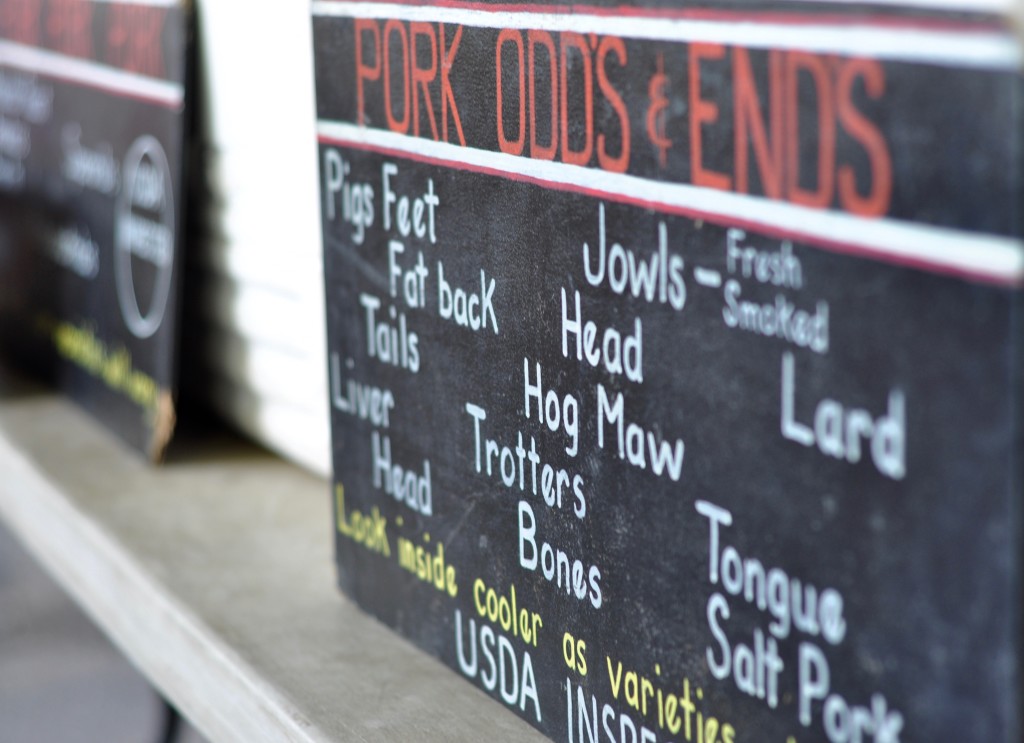 PORK ODD'S & END'S
Pigs Feet
Fat back
Tails
Liver
Head
Jowls - Fresh
Smoked
Head
Hog Maw
Trotters
Bones
Lard
Tongue
Salt Pork
Look inside cooler as varieties
USDA